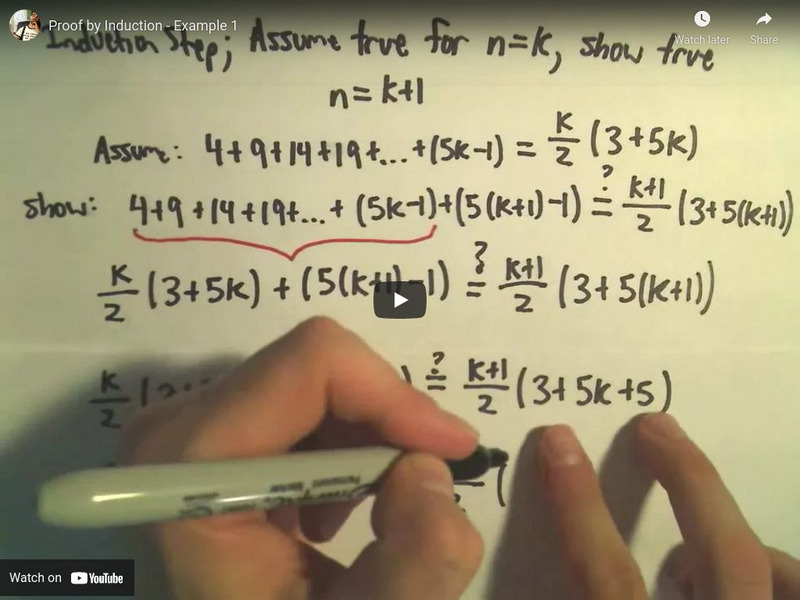 Proof by Induction - Example 1
Watch later
Share
Induction Step; Assume true for n=k, show true
n=k+1
Assume: 4+9+14+19+...+(5k-1) = k/2 (3+5k)
Show: 4+9+14+19+...+(5k-1)+(5(k+1)-1) ?= k+1/2 (3+5(k+1))
k/2 (3+5k) + (5(k+1)-1) ?= k+1/2 (3+5(k+1))
k/2 ( ) ?= k+1/2 (3+5k+5)
(
Permanent Marker
Watch on YouTube